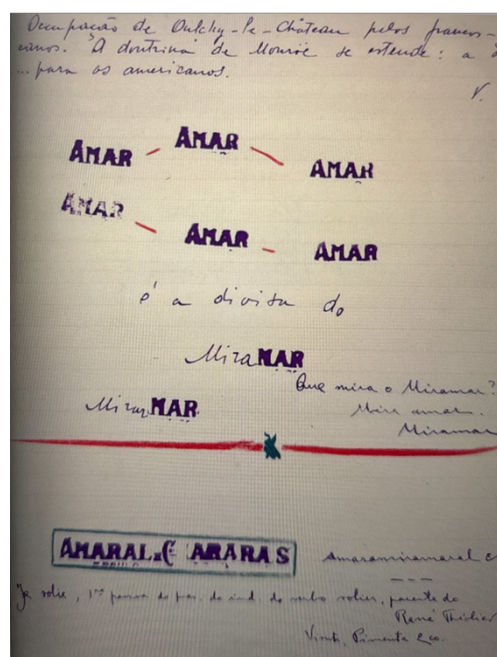 Occupação de Oulchy-le-Château pelos franco-
canos. A doutrina de Monroe se estende: a
...para os americanos.
V.
AMAR — AMAR — AMAR
AMAR — AMAR — AMAR
é a divisa do
MiraMAR
MirarMAR
Que mira o Miramar?
Mira amar.
Miramar
AMARAL & C ARARAS
Amaramiramaral
Je rolie, 1re do ind. do verbo rolier, parente do
René Thiollier
Vicente, Pimenta & co.